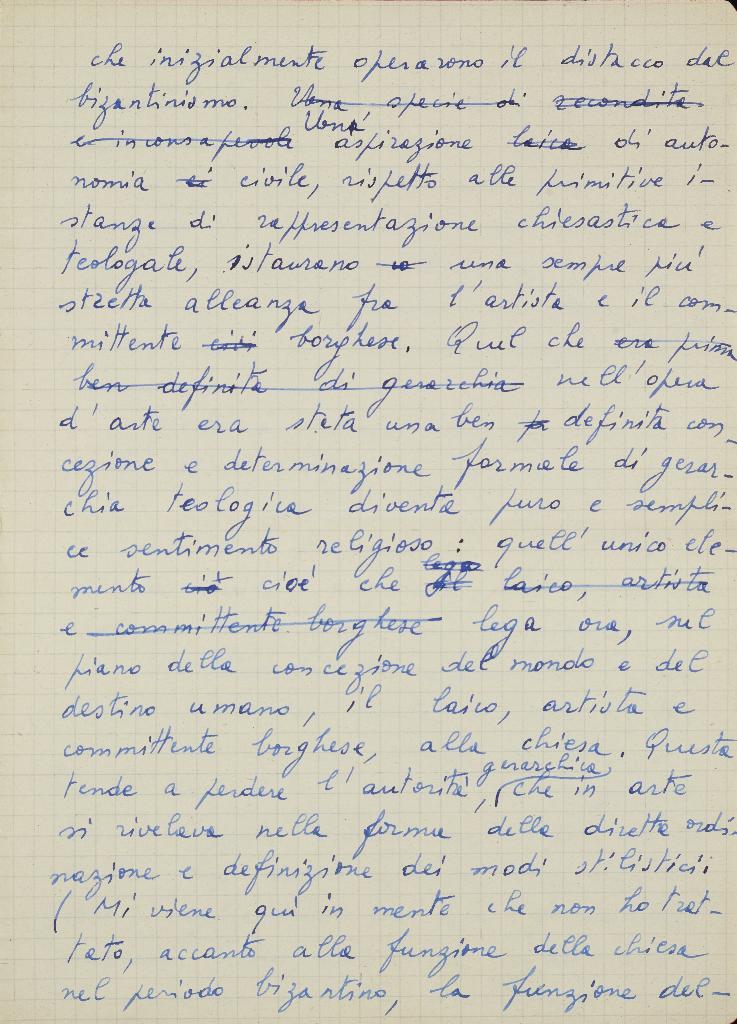 che inizialmente operarono il distacco dal
bizantinismo. Una specie di recondita
Una
e inconsapevole aspirazione laica di auto-
nomia ci civile, rispetto alle primitive i-
stanze di rappresentazione chiesastica e
teologale, istaurano una sempre più
stretta alleanza fra l'artista e il com-
mittente borghese. Quel che era prima
ben definita di gerarchia nell'opera
d'arte era stata una ben definita con-
cezione e determinazione formale di gerar-
chia teologica diventa puro e sempli-
ce sentimento religioso: quell'unico ele-
lega
mento ciò cioè che il laico, artista
e committente borghese lega ora, sul
piano della concezione del mondo e del
destino umano, il laico, artista e
committente borghese, alla chiesa. Questa
gerarchica
tende a perdere l'autorità, (che in arte
si rivelava nella forma della diretta ordi-
nazione e definizione dei modi stilistici.
(Mi viene qui in mente che non ho trat-
tato, accanto alla funzione della chiesa
nel periodo bizantino, la funzione del-